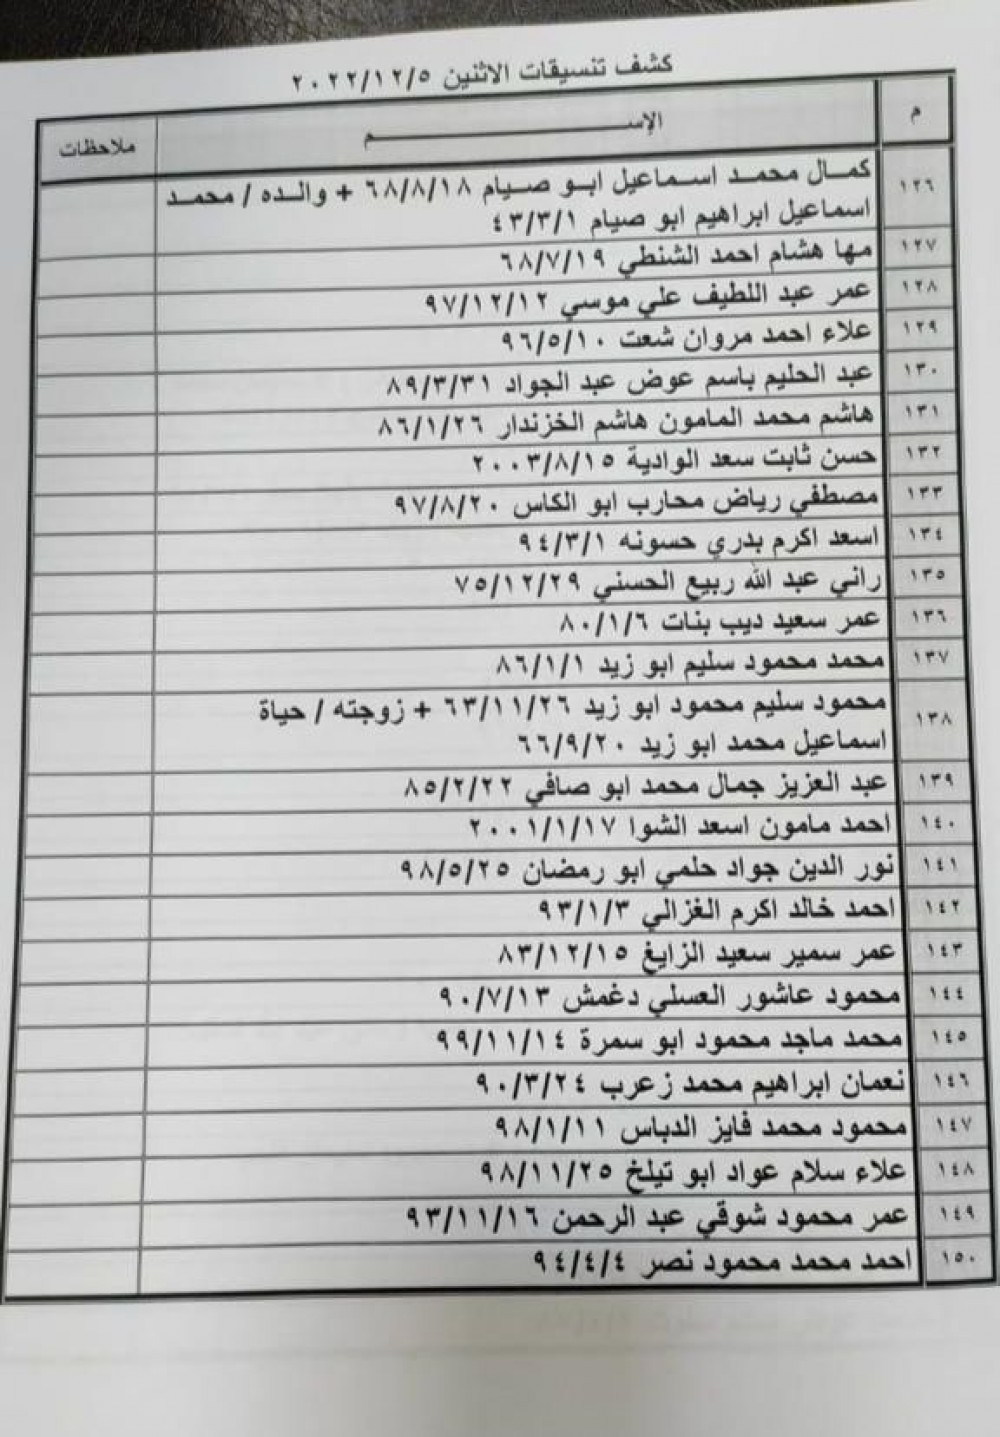 كشف تنسيقات الاثنين ٢٠٢٢/١٢/٥
م الإســـــــــم ملاحظات
١٢٦ كمال محمد اسماعيل ابو صيام ٦٨/٨/١٨ + والده / محمد
اسماعيل ابراهيم ابو صيام ٤٣/٣/١
١٢٧ مها هشام احمد الشنطي ٦٨/٧/١٩
١٢٨ عمر عبد اللطيف علي موسي ٩٧/١٢/١٢
١٢٩ علاء احمد مروان شعت ٩٦/٥/١٠
١٣٠ عبد الحليم باسم عوض عبد الجواد ٨٩/٣/٣١
١٣١ هاشم محمد المامون هاشم الخزندار ٨٦/١/٢٦
١٣٢ حسن ثابت سعد الوادية ٢٠٠٣/٨/١٥
١٣٣ مصطفي رياض محارب ابو الكاس ٩٧/٨/٢٠
١٣٤ اسعد اكرم بدري حسونه ٩٤/٣/١
١٣٥ راني عبد الله ربيع الحسني ٧٥/١٢/٢٩
١٣٦ عمر سعيد ديب بنات ٨٠/١/٦
١٣٧ محمد محمود سليم ابو زيد ٨٦/١/١
١٣٨ محمود سليم محمود ابو زيد ٦٣/١١/٢٦ + زوجته / حياة
اسماعيل محمد ابو زيد ٦٦/٩/٢٠
١٣٩ عبد العزيز جمال محمد ابو صافي ٨٥/٢/٢٢
١٤٠ احمد مامون اسعد الشوا ٢٠٠١/١/١٧
١٤١ نور الدين جواد حلمي ابو رمضان ٩٨/٥/٢٥
١٤٢ احمد خالد اكرم الغزالي ٩٣/١/٣
١٤٣ عمر سمير سعيد الزايغ ٨٣/١٢/١٥
١٤٤ محمود عاشور العسلي دغمش ٩٠/٧/١٣
١٤٥ محمد ماجد محمود ابو سمرة ٩٩/١١/١٤
١٤٦ نعمان ابراهيم محمد زعرب ٩٠/٣/٢٤
١٤٧ محمود محمد فايز الدباس ٩٨/١/١١
١٤٨ علاء سلام عواد ابو تيلخ ٩٨/١١/٢٥
١٤٩ عمر محمود شوقي عبد الرحمن ٩٣/١١/١٦
١٥٠ احمد محمد محمود نصر ٩٤/٤/٤